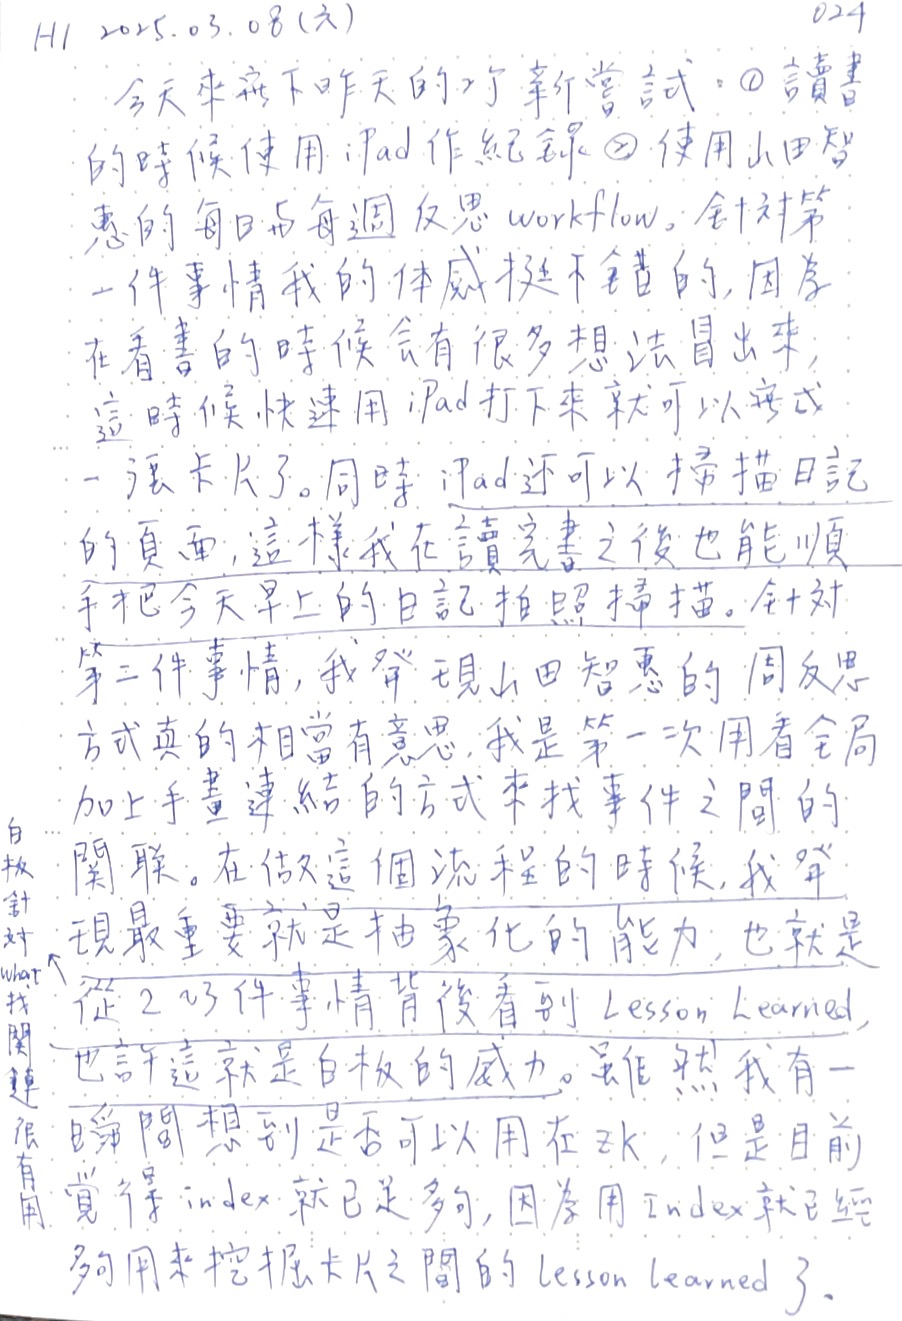 H1 2025.03.08(六)
024
今天來寫下昨天的2个新嘗試。① 讀書
的時候使用 iPad 作紀錄 ② 使用山田智
惠的每日与每週反思 workflow。針对第
一件事情我的体感挺不錯的, 因為
在看書的時候会有很多想法冒出來,
這時候快速用 iPad 打下來就可以寫成
一張卡片了。同時 iPad 还可以掃描日記
的頁面, 這樣我在讀完書之後也能順
手把今天早上的日記拍照掃描。針对
第二件事情, 我發現山田智惠的周反思
方式真的相當有意思, 我是第一次用看全局
加上手畫連結的方式來找事件之間的
関联。在做這個流程的時候, 我發
現最重要就是抽象化的能力, 也就是
從2~3件事情背後看到 Lesson Learned,
也許這就是白板的威力。雖然我有一
瞬間想到是否可以用在 ZK, 但是目前
覺得 index 就已足夠, 因為用 Index 就已經
夠用來挖掘卡片之間的 Lesson learned 了.
白板針对what找関連很有用